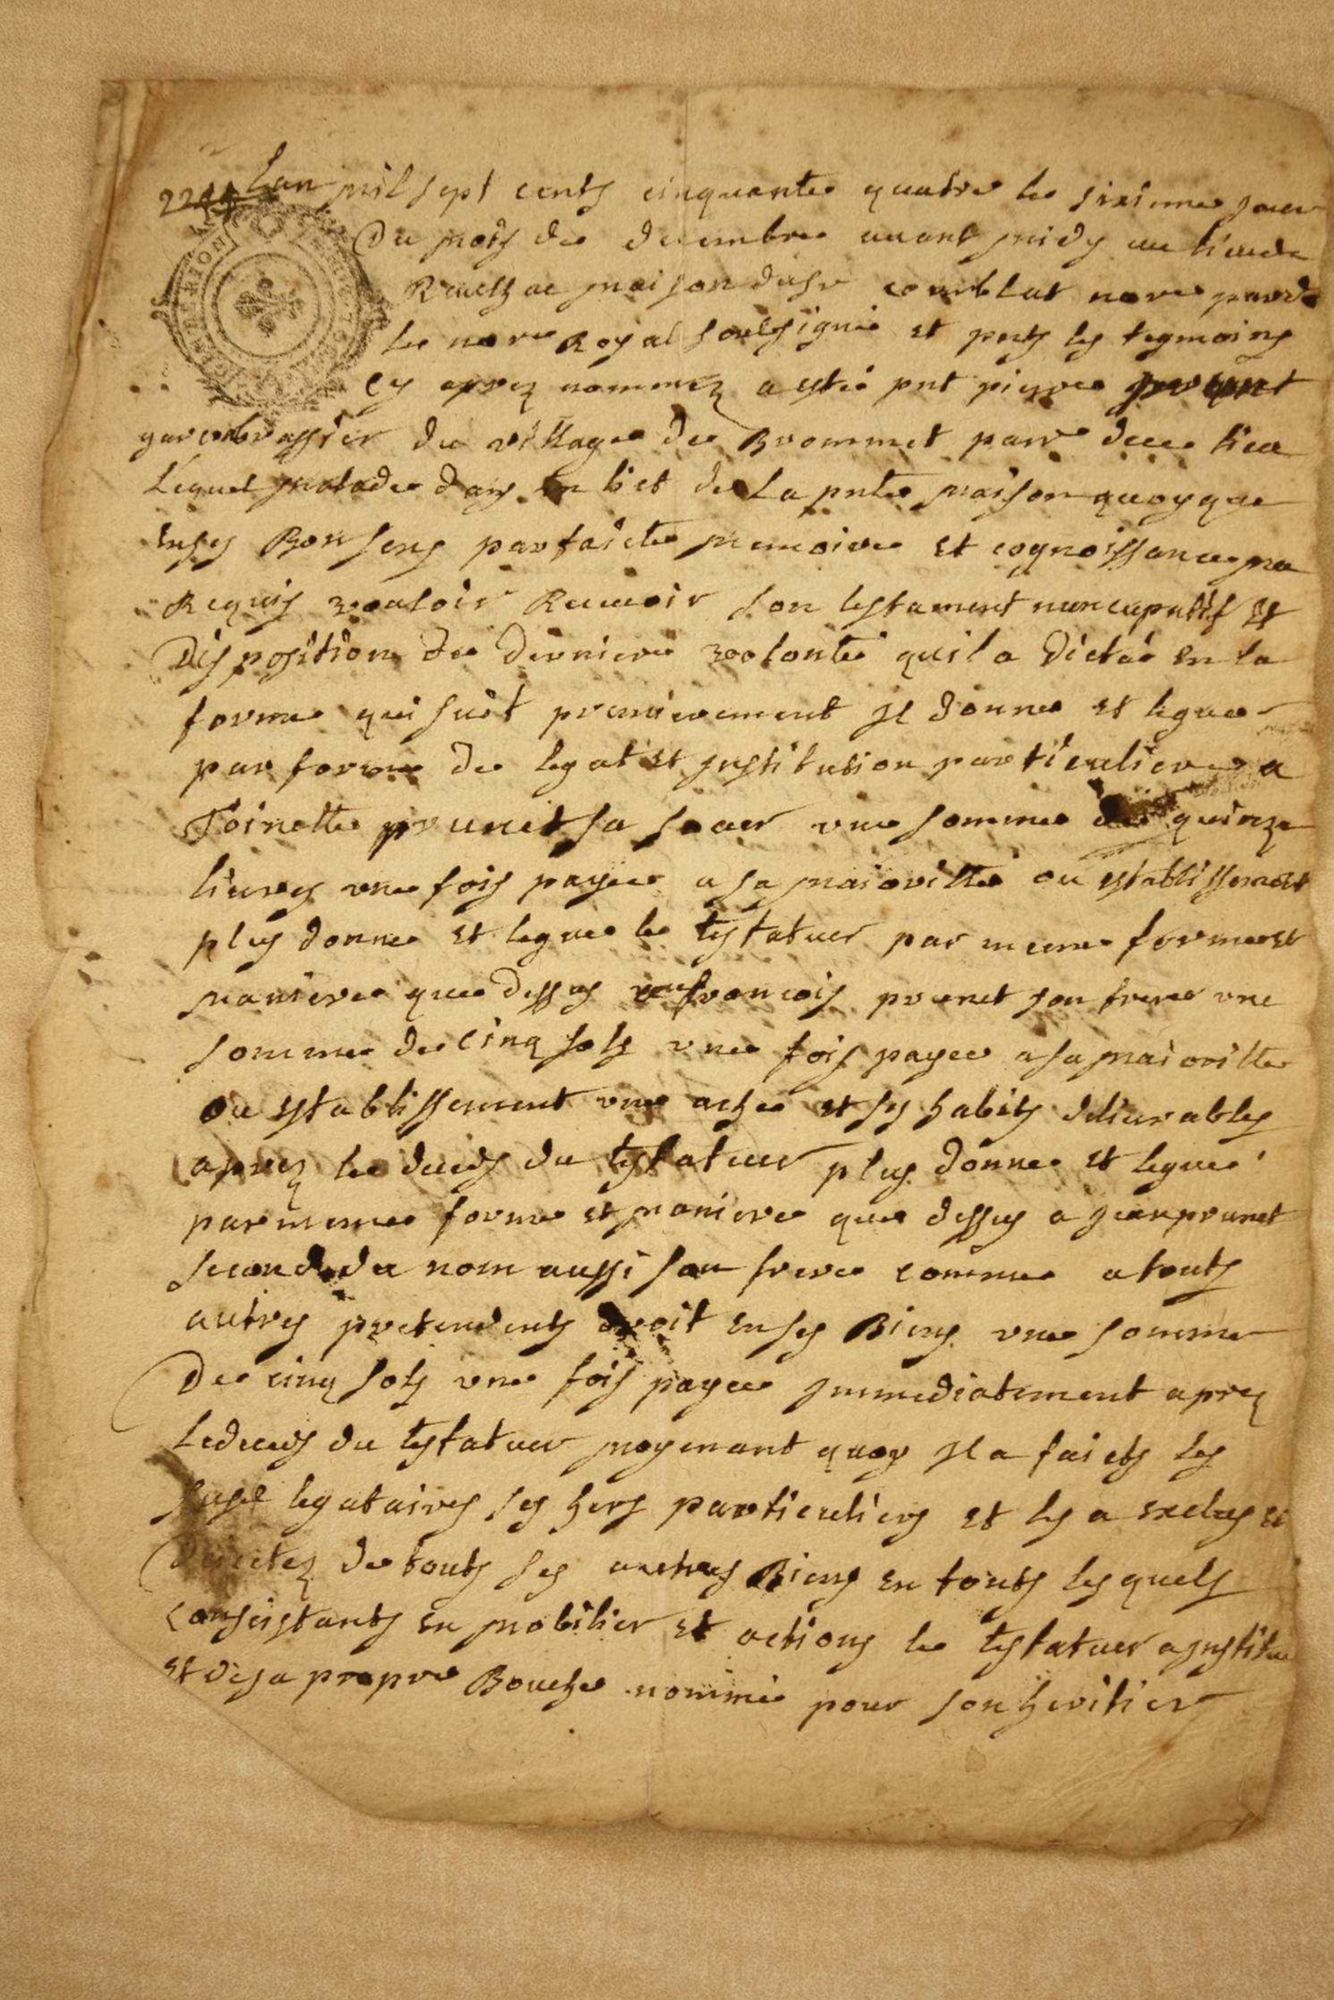 2244 Lan mil sept cents cinquante quatre le sixieme jour
Du mois de decembre avant midy au lieu de
maison du sr courblat nore par de
le nore Royal soubsigné et pnts les tesmoins
cy aprez nommez a esté pnt pierre prunet
garcon brassier du village de Brommet parr de ce lieu
Lequel malade dans un lict de La pnte maison quoyque
en ses Bon sens parfaicte memoire et cognoissance ma
Requis vouloir Recevoir son testament nuncupatif et
Disposition de derniere volonté quil a dictée en la
forme qui suit premierement Il donne et legue
par forme de legat et institution particuliere a
Toinette prunet sa soeur une somme de quinze
livres une fois payée a sa maioritté ou establissement
plus donne et legue le testateur par meme forme et
maniere que dessus francois prunet son frere une
somme de cinq sols une fois payee a sa maioritte
ou establissement une ache et ses habits delivrables
aprez le deceds du testateur plus donne et legué
par meme forme et maniere que dessus a jean prunet
second du nom aussi son frere comme a touts
autres pretendents droit en ses Biens une somme
De cinq sols une fois payee immediatement aprez
le deceds du testateur moyenant quoy Il a faicts les
susd legataires ses hers particuliers et les a exclus et
de touts ses autres Biens en touts lesquels
consistants en mobilier et actions le testateur a institue
et de sa propre Bouche nommé pour son heritier